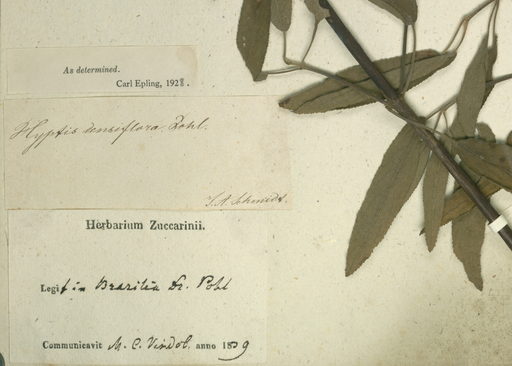 As determined.
Carl Epling, 1928.
Hyptis densiflora. Pohl.
J. A. Schmidt.
Herbarium Zuccarinii.
Legit in Brasilia Dr. Pohl
Communicavit M. C. Vindob. anno 1839